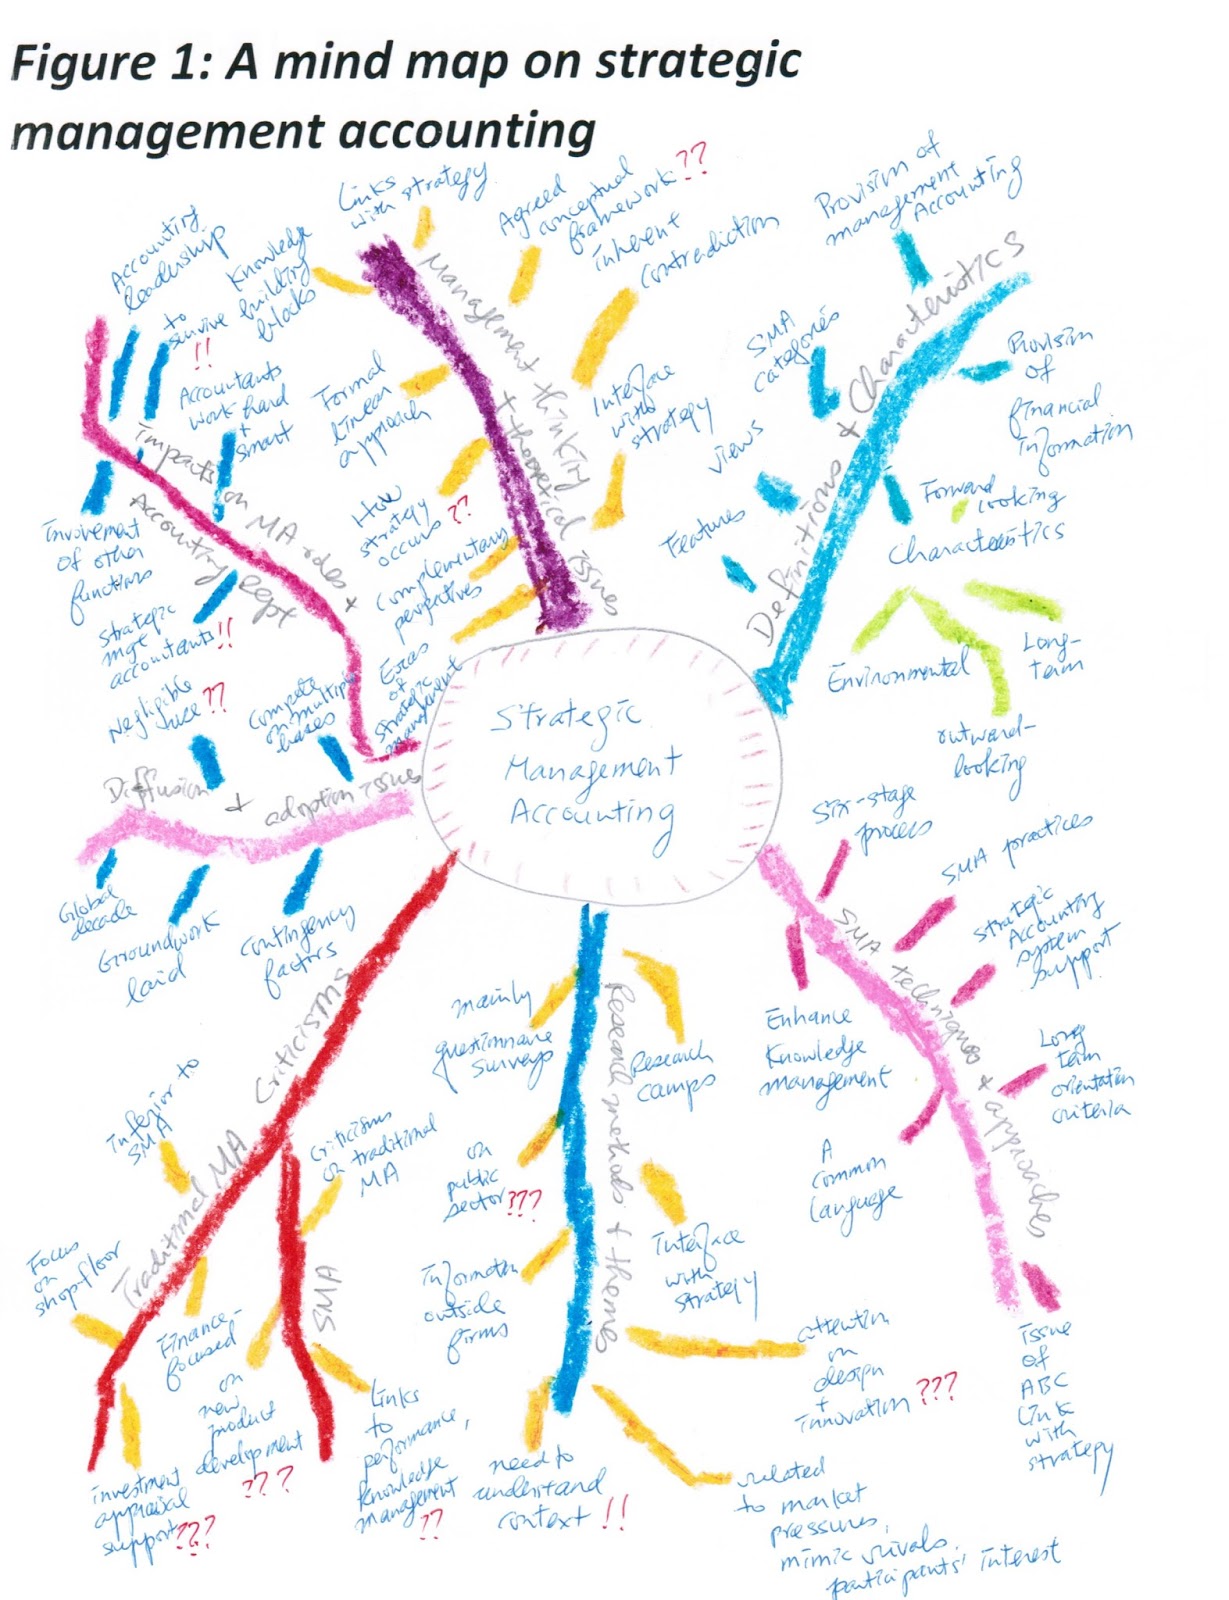 Figure 1: A mind map on strategic
management accounting
Strategic
Management
Accounting
Management thinking
+ theoretical issues
Links
with strategy
Agreed
conceptual
framework ??
inherent
contradiction
Interface
with
strategy
Knowledge
building
blocks
Formal
linear
approach
How
strategy
occurs ??
complementary
perspectives
Eras
of
strategic
management
Definitions + Characteristics
Provision of
management
Accounting
SMA
categories
views
Features
Provision
of
financial
information
Forward
looking
characteristics
Environmental
Long-
term
outward-
looking
SMA techniques + approaches
Six-stage
process
SMA practices
Strategic
Accounting
system
support
Long
term
orientation
criteria
Enhance
Knowledge
management
A
common
language
issue
of
ABC
link
with
strategy
Research methods + themes
Research
camps
mainly
questionnaire
surveys
on
public
sector ???
Information
outside
firms
need to
understand
context !!
Interface
with
strategy
attention
on
design
+
innovation ???
related
to market
pressures,
mimic rivals,
participants' interest
Criticisms
Traditional MA
inferior to
SMA
Focus
on
shop-floor
Finance-
focused
investment
appraisal
support ???
SMA
Criticisms
on traditional
MA
on
new
product
development
???
Links
to
performance,
knowledge
management
??
Diffusion + adoption issues
Negligible
use ??
compete
on multiple
bases
Global
decade
Groundwork
laid
contingency
factors
impacts on MA roles +
Accounting Dept
Accounting
leadership
to
survive
!!
Accountants
work hard
+
smart
Invovement
of other
functions
Strategic
mgt
accountants !!